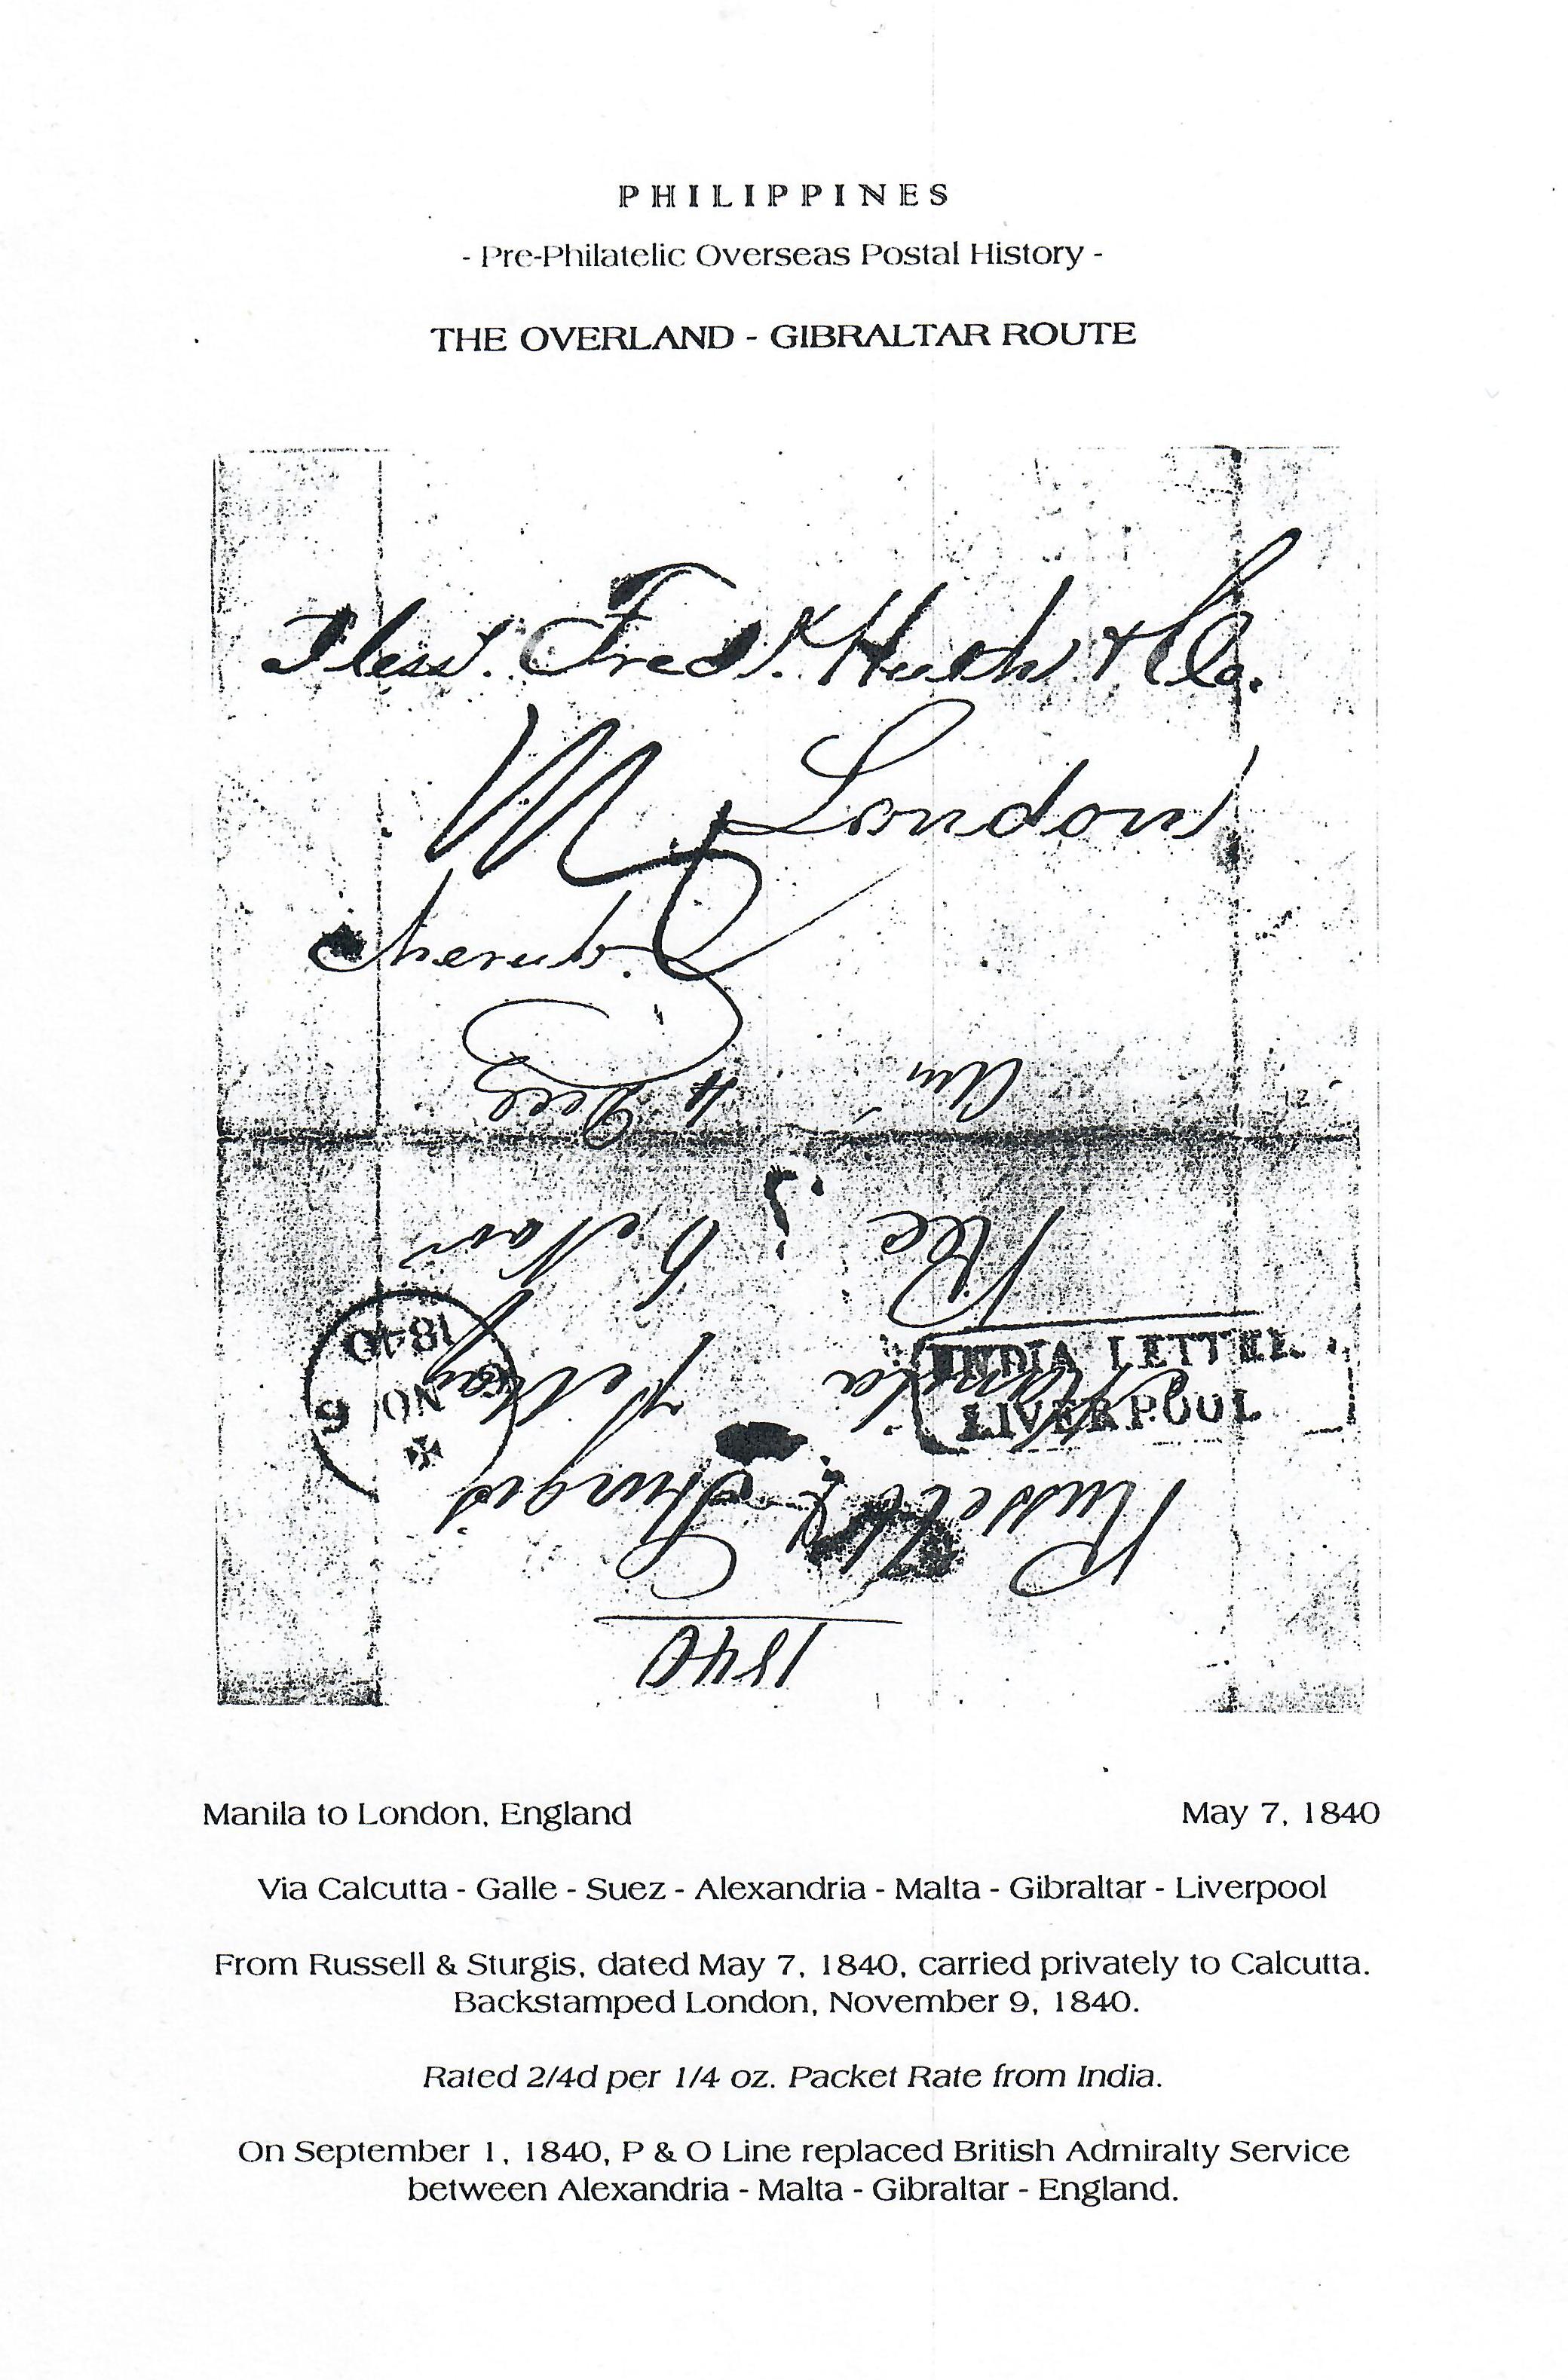 PHILIPPINES
- Pre-Philatelic Overseas Postal History -
THE OVERLAND - GIBRALTAR ROUTE
Mess.rs Fred.k Huth & Co.
London
Cherub.
4 Decr
6 Nov
Rec
1840
NO
9
INDIA LETTER
LIVERPOOL
Manila
7 May
Russell & Sturgis
1840
Manila to London, England
May 7, 1840
Via Calcutta - Galle - Suez - Alexandria - Malta - Gibraltar - Liverpool
From Russell & Sturgis, dated May 7, 1840, carried privately to Calcutta.
Backstamped London, November 9, 1840.
Rated 2/4d per 1/4 oz. Packet Rate from India.
On September 1, 1840, P & O Line replaced British Admiralty Service
between Alexandria - Malta - Gibraltar - England.